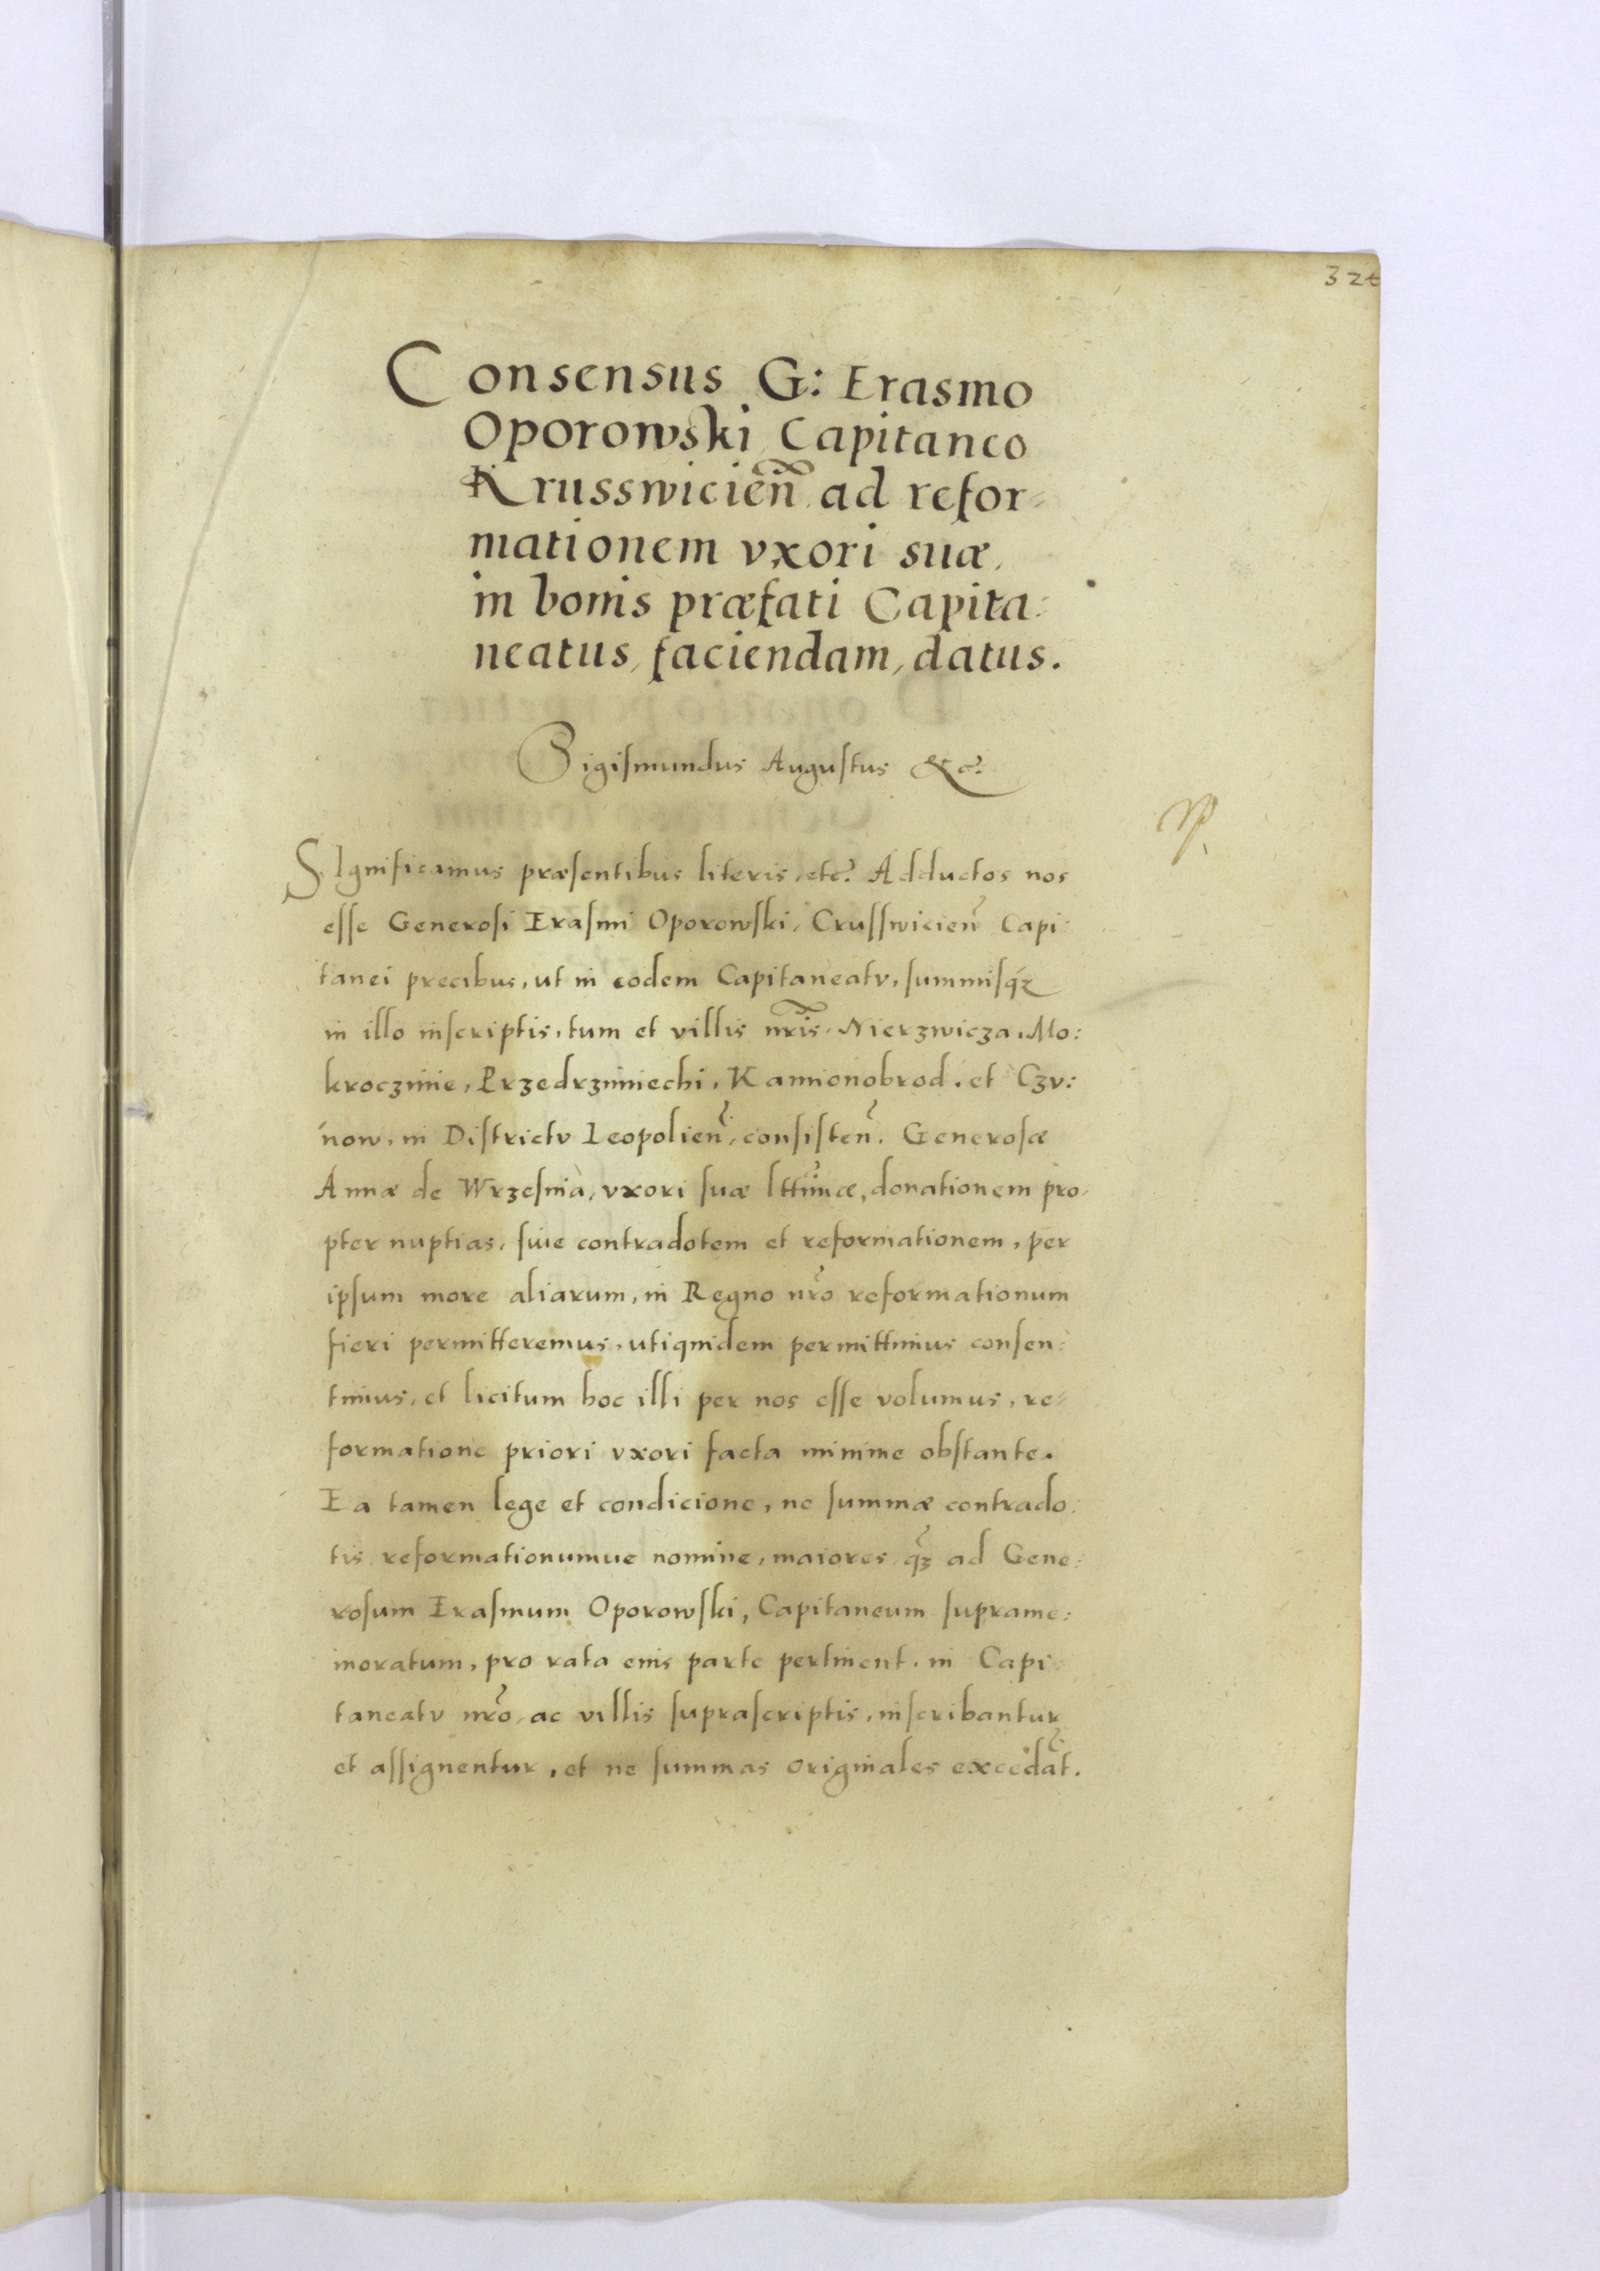 Consensus G: Erasmo
Oporowski Capitaneo
Krusswicien̄ ad refor-
mationem vxori suæ,
in bonis præfati Capita:
neatus, faciendam, datus.
Sigismundus Augustus &c.
SIgnificamus præsentibus literis, etc. Adductos nos
esse Generosi Erasmi Oporowski, Crusswicien̄ Capi:
tanei precibus, ut in eodem Capitaneatv, summisq̃ꝫ
in illo inscriptis, tum et villis nr̃is, Nierzwicza, Mo:
kroczinie, Przedrziniechi, Kamionobrod, et Czv:
now, in Districtv Leopolien̄, consisten̄. Generosæ
Annæ de Wrzesnia, vxori suæ lttimæ, donationem pro-
pter nuptias, siue contradotem et reformationem, per
ipsum more aliarum, in Regno nr̃o reformationum
fieri permitteremus, utiquidem permittimus consen:
timus, et licitum hoc illi per nos esse volumus, re-
formatione priori vxori facta minime obstante.
Ea tamen lege et condicione, ne summæ contrado:
tis reformationumue nomine, maiores q̃ꝫ ad Gene:
rosum Erasmum Oporowski, Capitaneum suprame:
moratum, pro rata eius parte pertinent, in Capi:
taneatv nr̃o, ac villis suprascriptis, inscribantur
et assignentur, et ne summas originales excedãt.